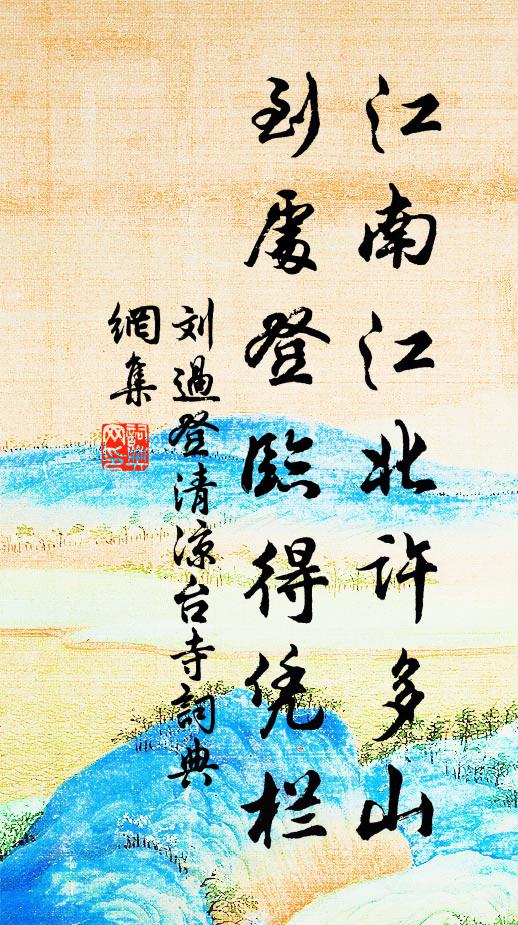 江南江北许多山
到處登臨得凭栏
刘過登清凉台寺詞典
網集